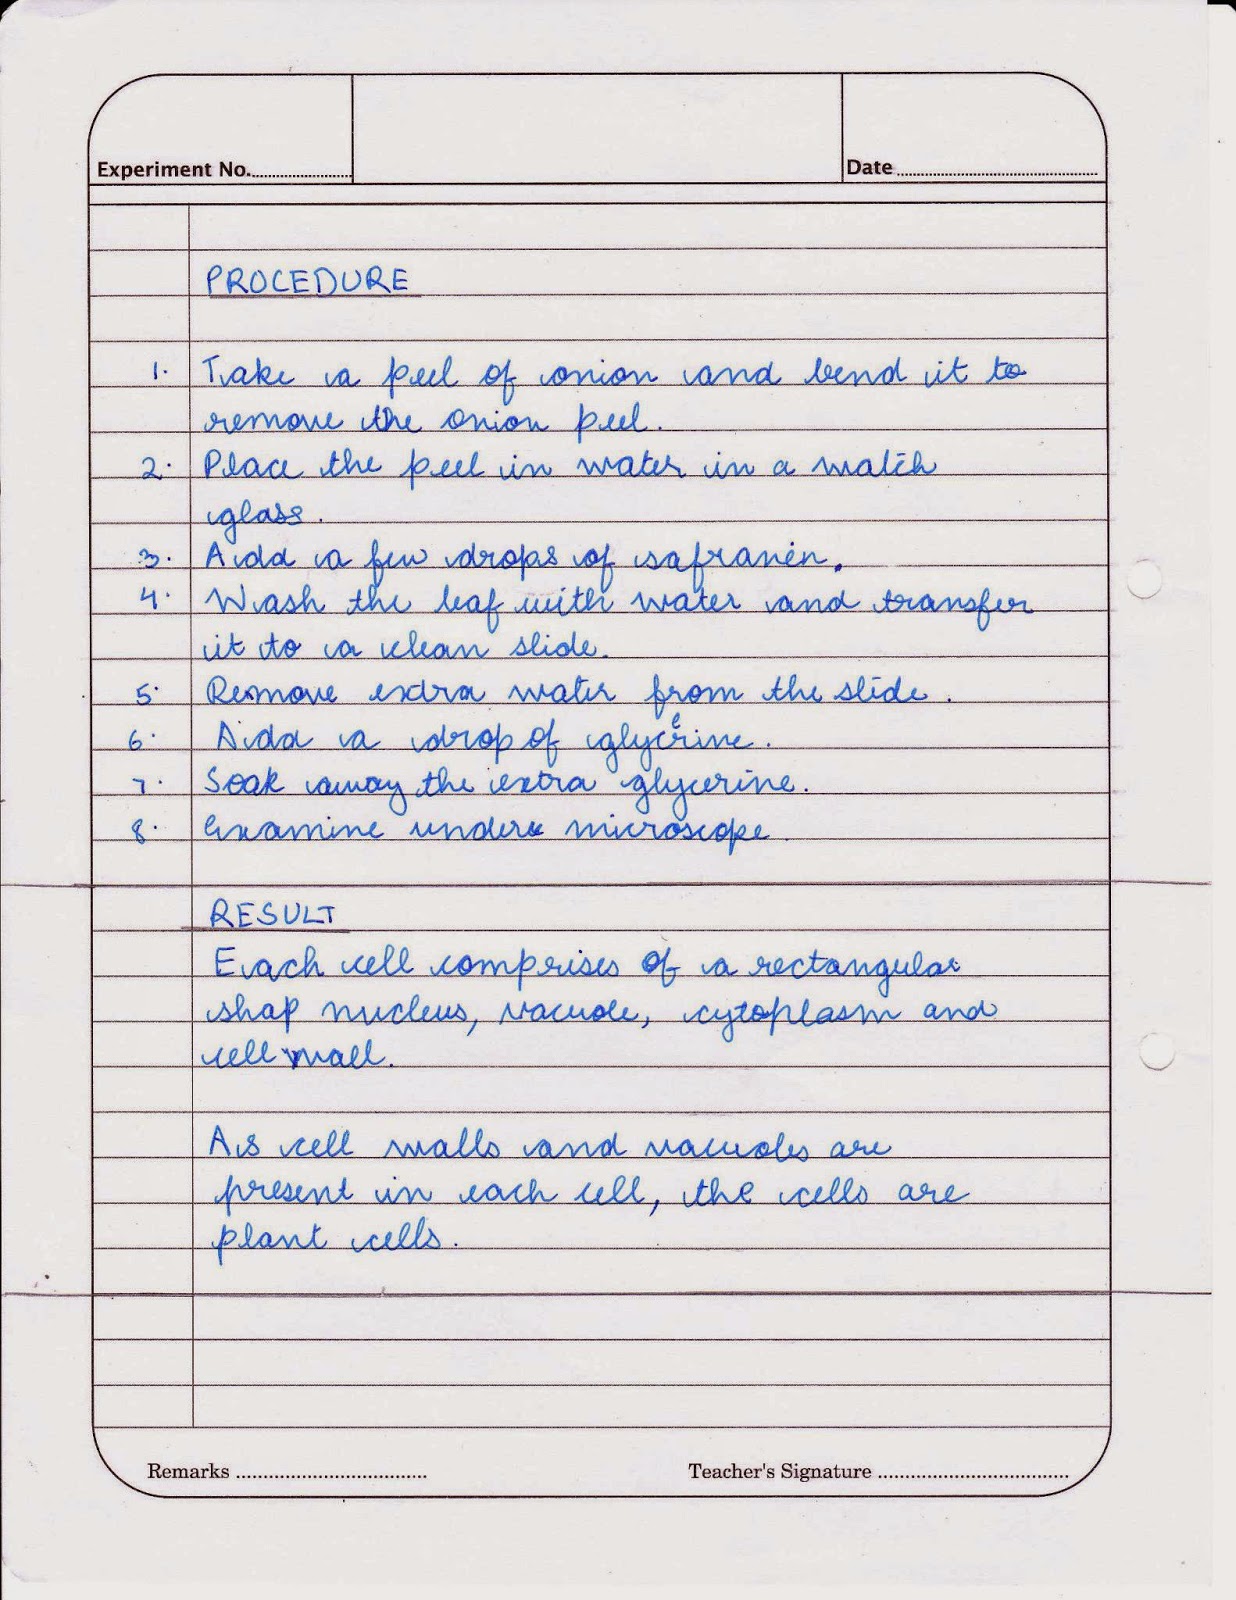 Experiment No.
Date
PROCEDURE
1. Take a peel of onion and bend it to
remove the onion peel.
2. Place the peel in water in a watch
glass.
3. Add a few drops of safranin.
4. Wash the leaf with water and transfer
it to a clean slide.
5. Remove extra water from the slide.
6. Add a drop of glycerine.
7. Soak away the extra glycerine.
8. Examine under microscope.
RESULT
Each cell comprises of a rectangular
shap nucleus, vacuole, cytoplasm and
cell wall.
As cell walls and vacuoles are
present in each cell, the cells are
plant cells.
Remarks
Teacher's Signature